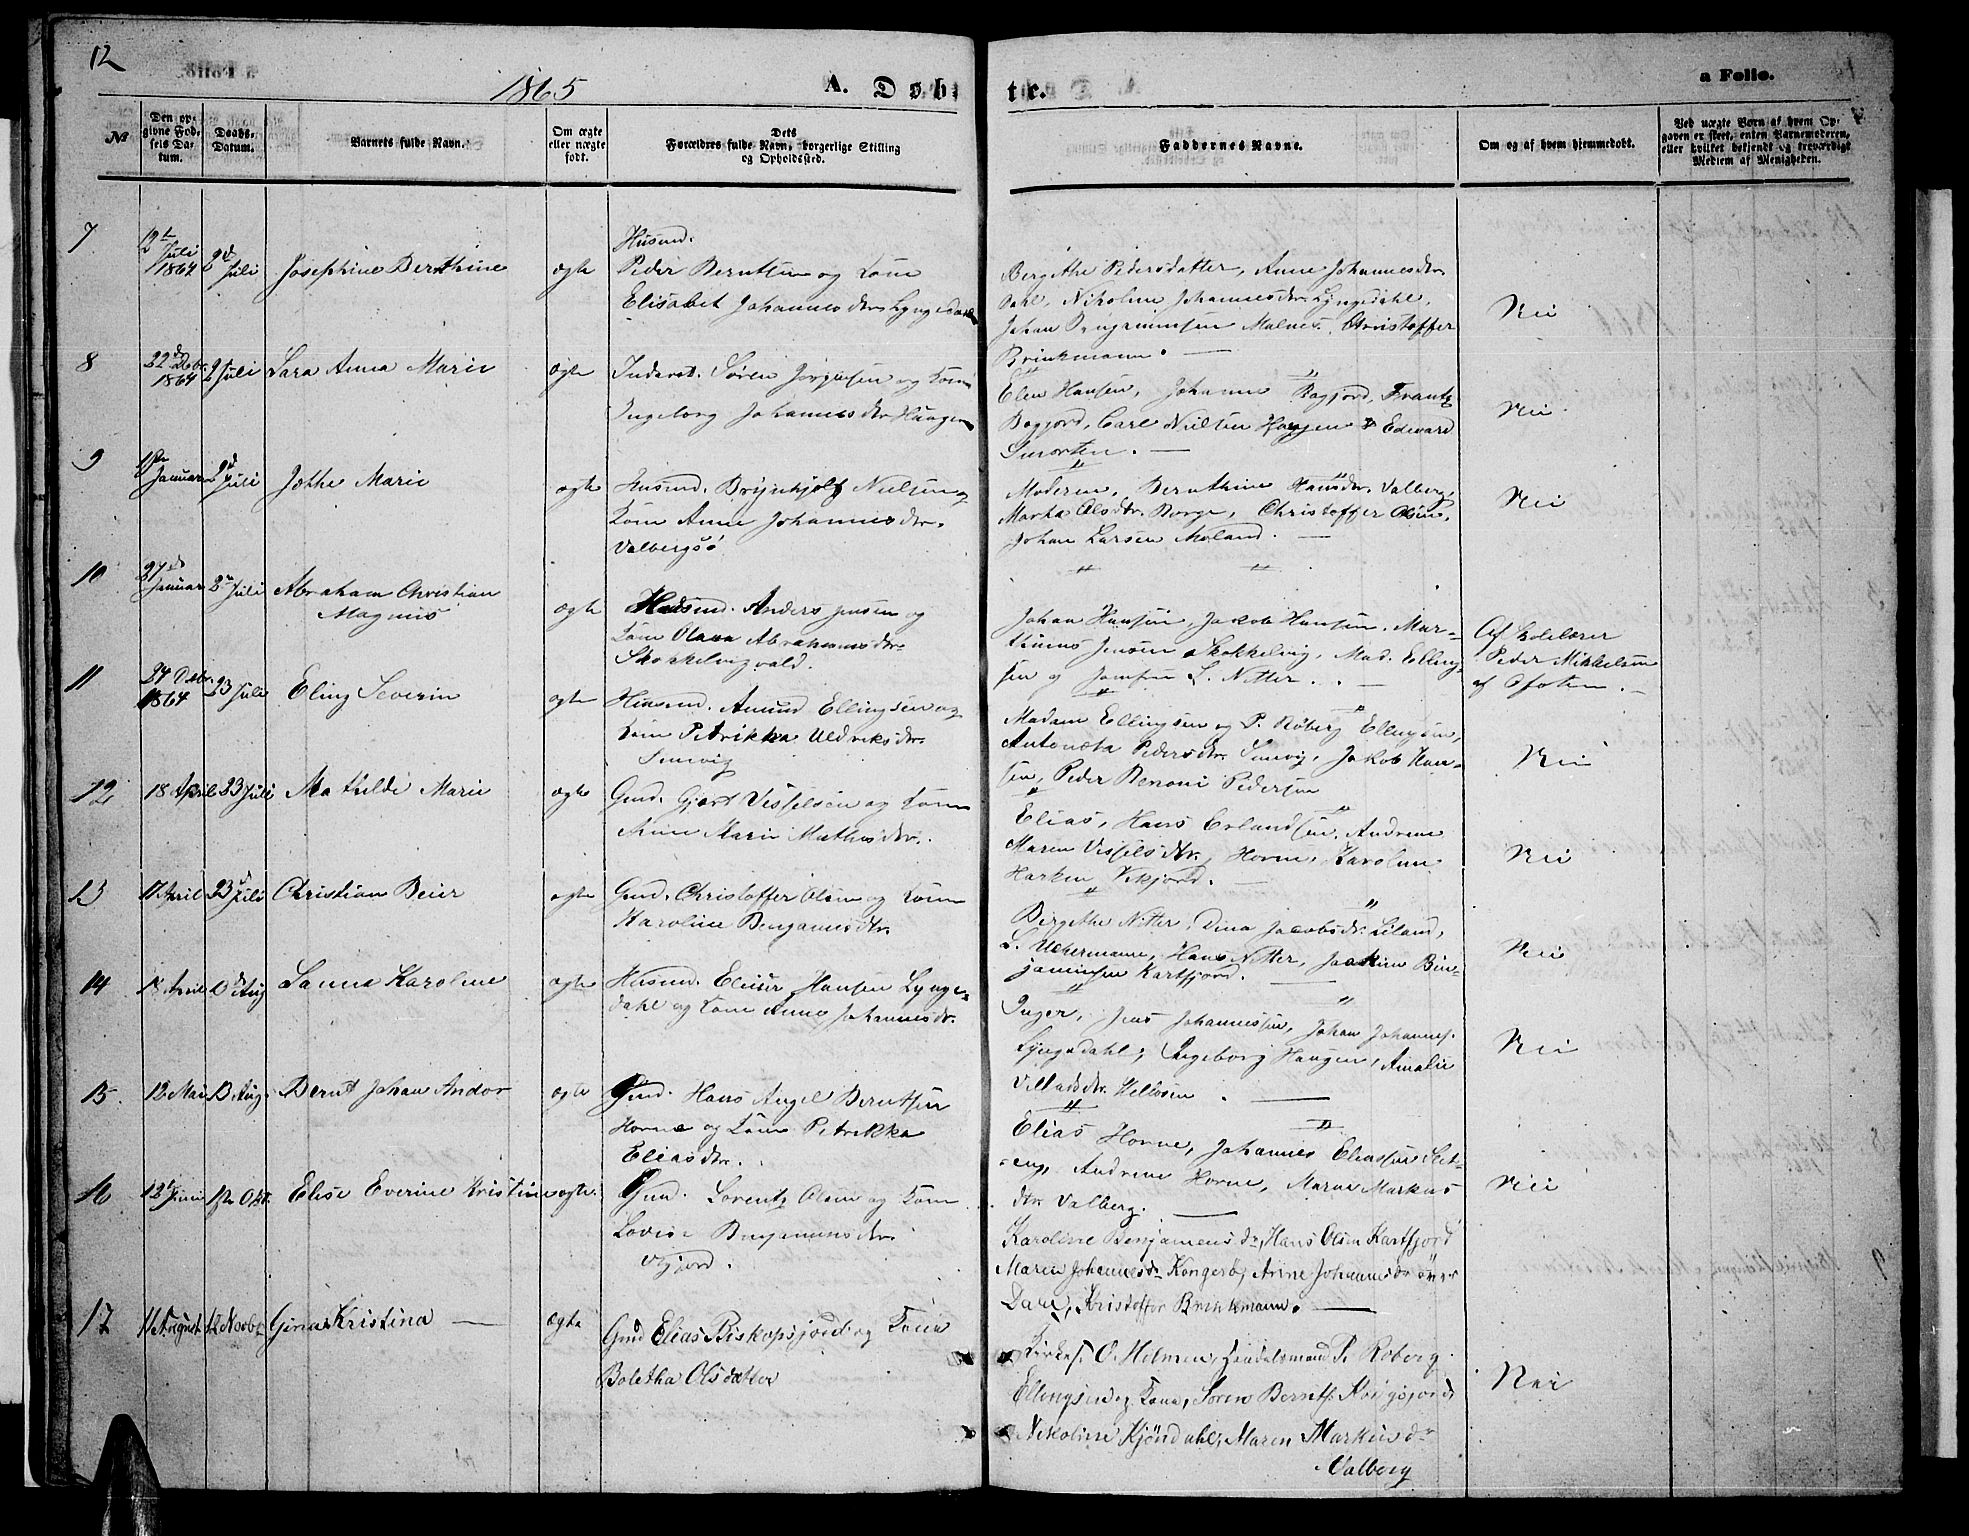 12
1865
A. Døbte.
a Folio.
№
Den opgivne Fødsels Datum.
Daabs-Datum.
Barnets fulde Navn.
Om ægte eller uægte født.
Dets Forældres fulde Navn, borgerlige Stilling og Opholdssted.
Faddernes Navne.
Om og af hvem hjemmedøbt.
Ved uægte Børn af hvem Opgaven er skeet, enten Barnemoderen, eller hvilket bekjendt og troværdigt Medlem af Menigheden.
7
12te Juli 1864
2d Juli
Josephine Bernthine
ægte
Husmd.
Peder Berntsen og Kone
Elisabet Johannesdtr. Lyngedahl
Bergithe Pedersdatter, Anne Johannesdtr.
Dahl, Nikoline Johannesdtr. Lyngedahl,
Johan Malnes, Christoffer
Brinkmann. —
Nei
8
22d Debr. 1864
2d Juli
Sara Anna Marie
ægte
Inderst. Søren Jørgensen og Kone
Ingeborg Johannesdtr. Haugen
Elen Hansen, Johanne Bogfjord, Frantz
Bogfjord, Carl Nielsen Haugen & Edevard
Smorten. —
Nei
9
Januar
2d Juli
Jethe Marie
ægte
Husmd. Brynhjolf Nielsen og
Kone Anne Johannesdtr.
Valbergsø
Moderen, Bernthine Hansdtr. Valberg,
Martha Olsdtr. Borge, Christoffer Olsen,
Johan Larsen Moland. —
Nei
10
27de Januar
2n Juli
Abraham Christian
Magnus
ægte
Husmd. Anders Jensen og
Kone Olava Abrahamsdtr.
Skokkelvigvald.
Johan Hansen, Jakob Hansen, Mar-
thinus Jensen Skokkelvig, Mad. Elling-
sen og Jomfru L. Nitter. . —
Af Skolelærer
Peder Mikkelsen
af Ofoten. —
11
24 Debr. 1864
23 Juli
Eling Severin
ægte
Husmd. Amund Ellingsen og
Kone Petrikka Uldriksdtr.
Sennvig
Madam Ellingsen og P. Røberg Ellingsen,
Antoneta Pedersdtr. Sanvig, Jakob Han-
sen, Peder Benoni Pedersen
Nei
12
18 April
23 Juli
Mathilde Marie
ægte
Gmd. Gjert Visselsen og Kone
Anne Marie Mathisdtr.
Elias, Hans Erlandsen, Andrine
Maren Visselsdtr. Horne, Karoline
Harken Vikjord. —
Nei
13
17 April
23d Juli
Christian Beier
ægte
Gmd. Christoffer Olsen og Kone
Karoline Benjaminsdtr.
Bergithe Nitter, Dina Jacobsdtr. Liland,
L. Uchermann, Hans Nitter, Joakim Ben-
jaminsen Kartfjord. —
Nei
14
18 April
Aug
Sanna Karoline
ægte
Husmd. Eliser Hansen Lynge-
dahl og Kone Anne Johannesdtr.
Inger, Jens Johannessen, Johan Johannes.
Lyngedahl, Ingeborg Haugen, Amalie
Villadsdtr. Hellosen . —
Nei
15.
12 Mai
13 Aug.
Bernt Johan Andor
ægte
Gmd. Hans Angel Berntsen
Horne og Kone Petrikka
Eliasdtr.
Elias Horne, Johannes Eliassen Sæt-
eng, Andrine Horne, Maren Markus
dtr. Valberg. —
Nei
16
12te Juni
1ste Okt.
Elise Everine Kristine
ægte.
Gmd. Lorentz Olsen og Kone
Lovise Benjaminsdtr.
Vigjord.
Karoline Benjamensdr, Hans Olsen Kartfjord
Maren Johannesdr Kongerø, Anne Johannesdr
Dahl, Kristoffer Brinkmann. —
17
11 August
12 Novbr
Gina Kristina —
ægte
Gmd Elias Biskopsjord og Kone
Boletha Olsdatter
Kirkes. O. Holmen, Handelsmand P. Roberg
Ellingsen og Kone, Søren Bernts. Haugsjord,
Nikoline Kjøndahl, Maren Markus dr
Valberg
Nei